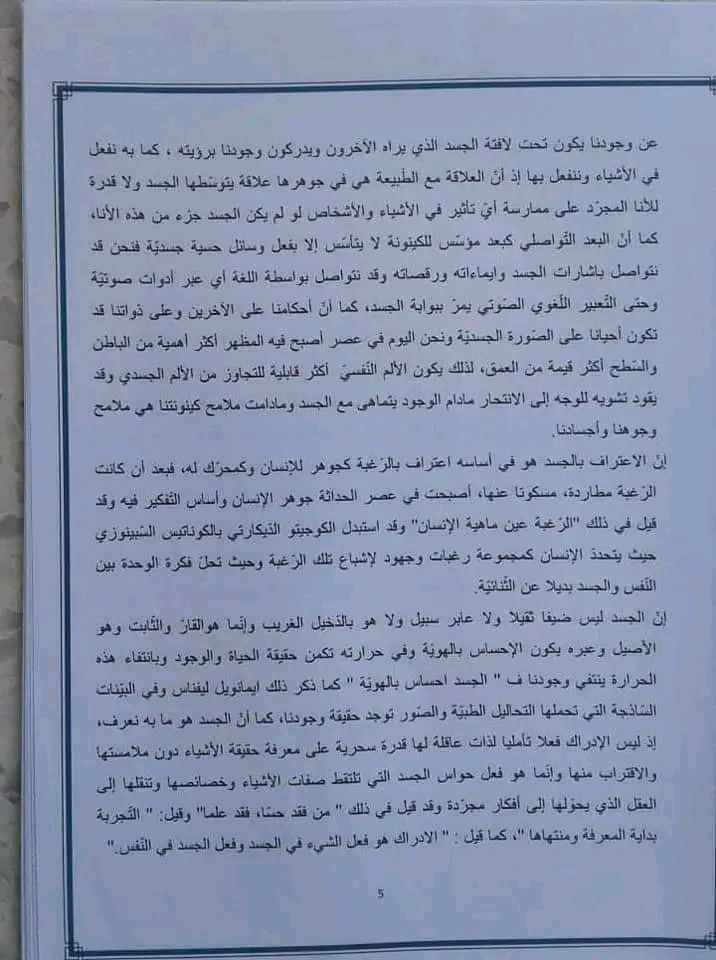 عن وجودنا يكون تحت لافتة الجسد الذي يراه الآخرون ويدركون وجودنا برؤيته ، كما به نفعل
في الأشياء وننفعل بها إذ أنّ العلاقة مع الطّبيعة هي في جوهرها علاقة يتوسّطها الجسد ولا قدرة
للأنا المجرّد على ممارسة أيّ تأثير في الأشياء والأشخاص لو لم يكن الجسد جزء من هذه الأنا،
كما أنّ البعد التّواصلي كبعد مؤسّس للكينونة لا يتأسّس إلا بفعل وسائل حسية جسديّة فنحن قد
نتواصل باشارات الجسد وايماءاته ورقصاته وقد نتواصل بواسطة اللغة أي عبر أدوات صوتيّة
وحتى التّعبير اللّغوي الصّوتي يمرّ ببوابة الجسد، كما أنّ أحكامنا على الآخرين وعلى ذواتنا قد
تكون أحيانا على الصّورة الجسديّة ونحن اليوم في عصر أصبح فيه المظهر أكثر أهمية من الباطن
والسّطح أكثر قيمة من العمق، لذلك يكون الألم النّفسيّ أكثر قابلية للتجاوز من الألم الجسدي وقد
يقود تشويه للوجه إلى الانتحار مادام الوجود يتماهى مع الجسد ومادامت ملامح كينونتنا هي ملامح
وجوهنا وأجسادنا.
إنّ الاعتراف بالجسد هو في أساسه اعتراف بالرّغبة كجوهر للإنسان وكمحرّك له، فبعد أن كانت
الرّغبة مطاردة، مسكوتا عنها، أصبحت في عصر الحداثة جوهر الإنسان وأساس التّفكير فيه وقد
قيل في ذلك "الرّغبة عين ماهية الإنسان" وقد استبدل الكوجيتو الدّيكارتي بالكوناتيس السّبينوزي
حيث يتحدّد الإنسان كمجموعة رغبات وجهود لإشباع تلك الرّغبة وحيث تحلّ فكرة الوحدة بين
النّفس والجسد بديلا عن الثّنائيّة.
إنّ الجسد ليس ضيفا ثقيلا ولا عابر سبيل ولا هو بالدّخيل الغريب وإنّما هوالقارّ والثّابت وهو
الأصيل وعبره يكون الإحساس بالهويّة وفي حرارته تكمن حقيقة الحياة والوجود وبانتفاء هذه
الحرارة ينتفي وجودنا ف " الجسد احساس بالهويّة " كما ذكر ذلك ايمانويل ليفناس وفي البيّنات
السّاذجة التي تحملها التحاليل الطبيّة والصّور توجد حقيقة وجودنا، كما أنّ الجسد هو ما به نعرف،
إذ ليس الإدراك فعلا تأمليا لذات عاقلة لها قدرة سحرية على معرفة حقيقة الأشياء دون ملامستها
والاقتراب منها وإنّما هو فعل حواس الجسد التي تلتقط صفات الأشياء وخصائصها وتنقلها إلى
العقل الذي يحوّلها إلى أفكار مجرّدة وقد قيل في ذلك " من فقد حسّا، فقد علما" وقيل: " التّجربة
بداية المعرفة ومنتهاها "، كما قيل : " الادراك هو فعل الشيء في الجسد وفعل الجسد في النّفس."
5